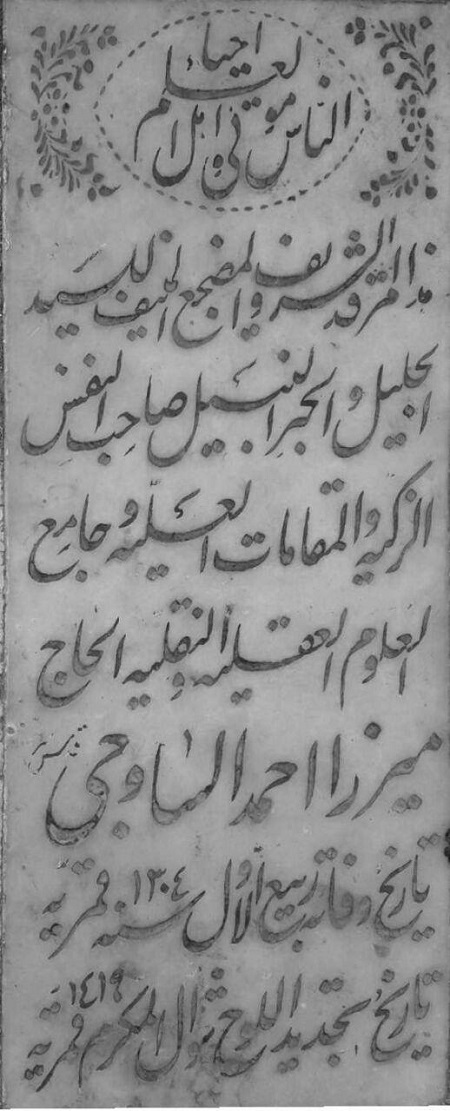 الناس موتى و اهل العلم احياء
هذا المرقد الشريف و المضجع المنيف للسيد
الجليل و الحبر النبيل صاحب النفس
الزكيه و المقامات العليه و جامع
العلوم العقليه و النقليه الحاج
ميرزا احمد الساوجي
تاريخ وفاته ربيع الاول سنه ١٣٠٤ قمريه
تاريخ تجديد اللوح شوال المكرم ١٤١٩ قمريه